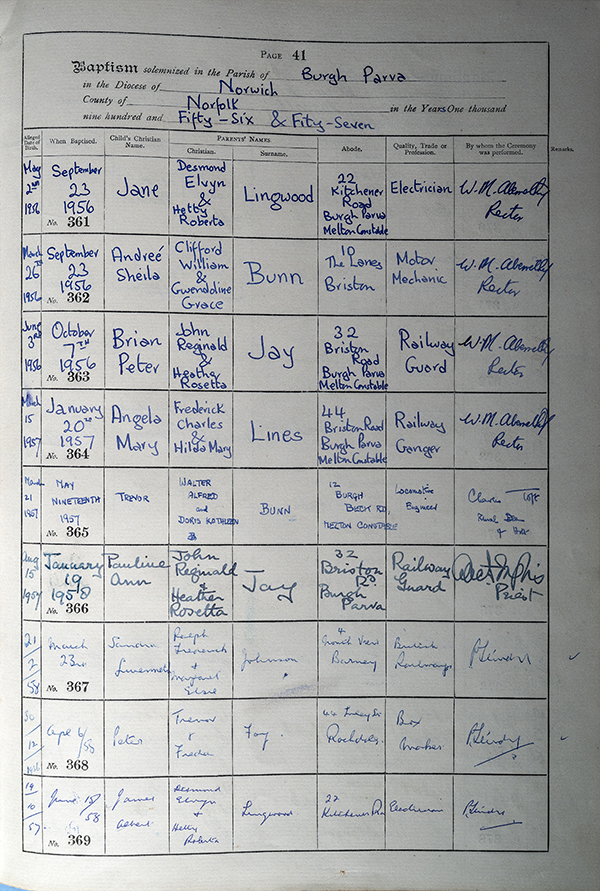 PAGE 41
Baptism solemnized in the Parish of Burgh Parva
in the Diocese of Norwich
County of Norfolk in the Years One thousand
nine hundred and Fifty-Six & Fifty-Seven
Alleged Date of Birth. When Baptised. Child's Christian Name. PARENTS' NAMES. Christian. Surname. Abode. Quality, Trade or Profession. By whom the Ceremony was performed. Remarks.
May 2nd 1956
September 23 1956
No. 361
Jane
Desmond
Elvyn
&
Hetty
Roberta
Lingwood
22
Kitchener
Road
Burgh Parva
Melton Constable
Electrician
W. M. Abernethy
Rector
March 26th 1956
September
23
1956
No. 362
Andreé
Sheila
Clifford
William
&
Gwendoline
Grace
Bunn
10
The Lanes
Briston
Motor
Mechanic
W. M. Abernethy
Rector
June 3rd 1956
October
7th
1956
No. 363
Brian
Peter
John
Reginald
&
Heather
Rosetta
Jay
32
Briston
Road
Burgh Parva
Melton Constable
Railway
Guard
W. M. Abernethy
Rector
March 15 1957
January
20th
1957
No. 364
Angela
Mary
Frederick
Charles
&
Hilda Mary
Lines
44
Briston Road
Burgh Parva
Melton Constable
Railway
Ganger
W. M. Abernethy
Rector
March 21 1957
MAY
NINETEENTH
1957
No. 365
TREVOR
WALTER
ALFRED
and
DORIS KATHLEEN
BUNN
12
BURGH
BECK RD,
MELTON CONSTABLE
Locomotive
Engineer
Rural Dean
Aug 15 1957
January
19
1958
No. 366
Pauline
Ann
John
Reginald
&
Heather
Rosetta
Jay
32
Briston
Rd
Burgh
Parva
Railway
Guard
Priest
21/2/58
March
23rd
No. 367
Sandra
Ralph
Frederick
+
Margaret
Elsie
Johnson
4
Barney
British
Railways
30
12
Apl 6/58
No. 368
Peter
Trevor
&
Freda
Foy.
Box
Maker
19
10
57
June 15/58
No. 369
James
Albert
Desmond
Elvyn
&
Hetty
Roberta
Lingwood
22
Kitchener Rd
Electrician